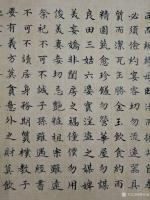 必須儉約宴客切勿留連器具
質而潔瓦缶勝金玉飲食約而
精園蔬愈珍饈勿營華屋勿謀
良田三姑六婆實淫盜之媒婢
美妾嬌非閨房之福僮僕勿用
俊美妻妾切忌艷粧祖宗雖遠
祭祀不可不誠子孫雖愚經書
不可不讀居身務期質樸教子
要有義方莫貪意外之財莫飲